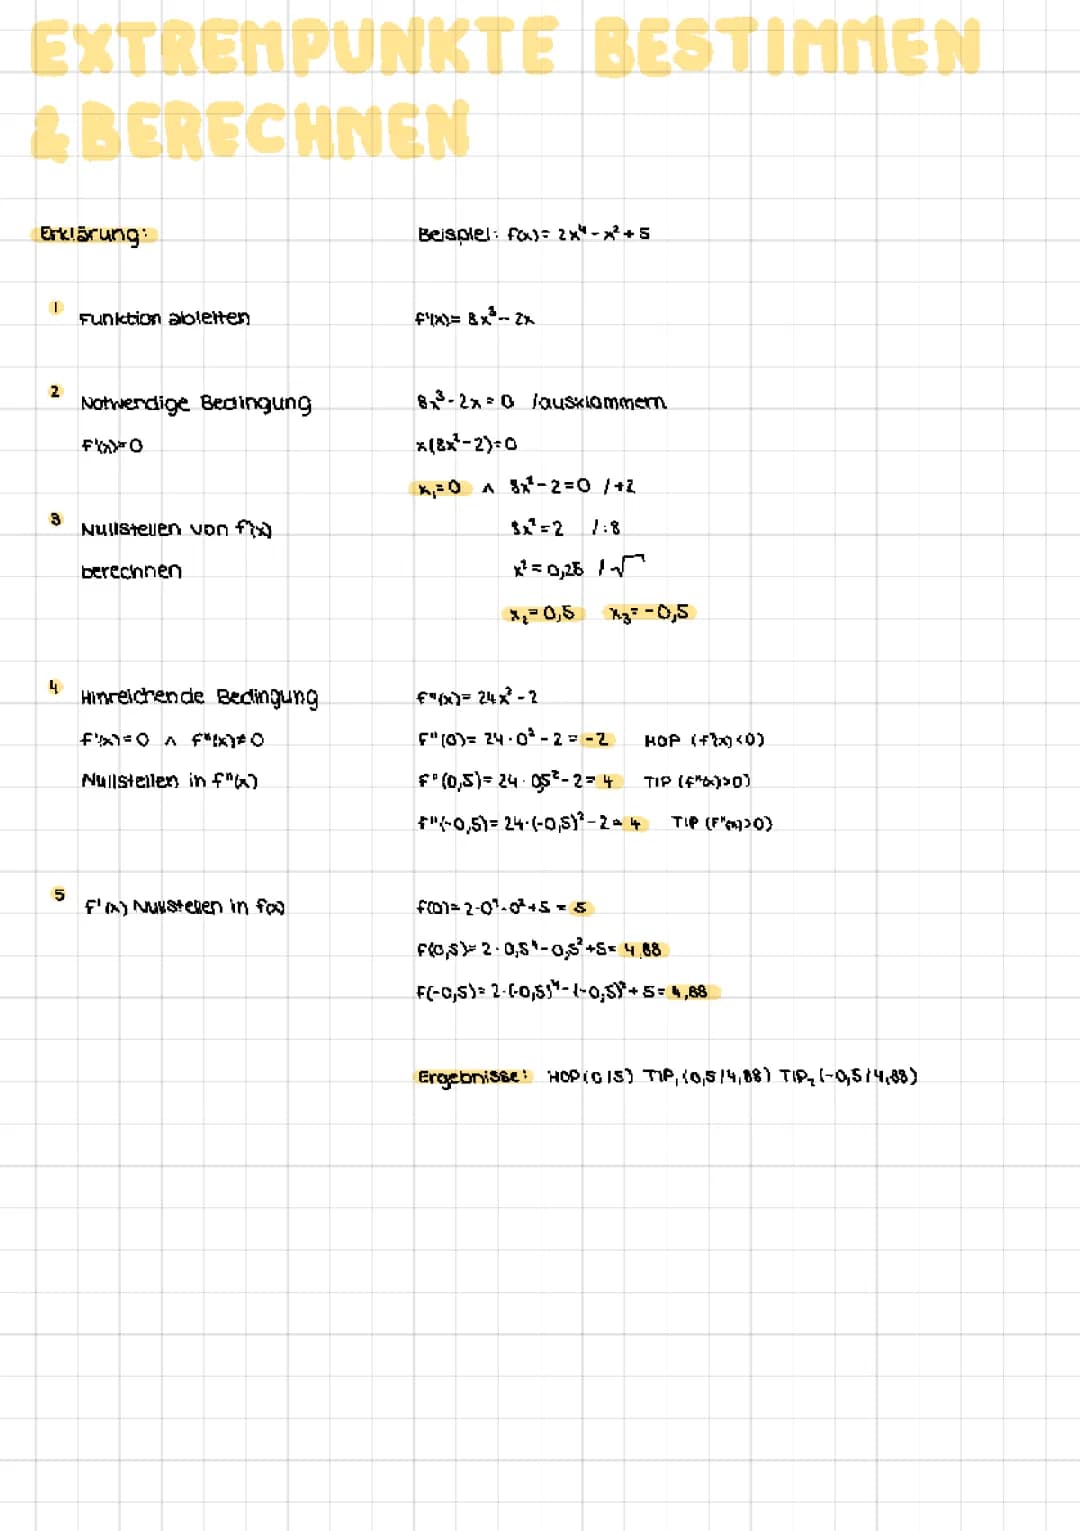 EXTREMPUNKTE BESTIMMEN
& BERECHNEN
Erklärung:
Beispiel: f(x)= 2x⁴-x²+5
1 Funktion ableiten
f'(x)= 8x³-2x
2 Notwendige Bedingung
8x³-2x=0 /ausklammern
f'(x)=0
x(8x²-2)=0
x₁=0 ∧ 8x²-2=0 /+2
3 Nullstellen von f'(x)
8x²=2 /:8
berechnen
x²=0,25 /√
x₂=0,5 x₃=-0,5
4 Hinreichende Bedingung
f"(x)= 24x²-2
f'(x)=0 ∧ f"(x)≠0
f"(0)= 24·0²-2=-2 HOP (f"(x)<0)
Nullstellen in f"(x)
f"(0,5)= 24·0,5²-2=4 TIP (f"(x)>0)
f"(-0,5)= 24·(-0,5)²-2=4 TIP (f"(x)>0)
5 f'(x) Nullstellen in f(x)
f(0)=2·0⁴-0²+5=5
f(0,5)=2·0,5⁴-0,5²+5=4,88
f(-0,5)=2·(-0,5)⁴-(-0,5)²+5=4,88
Ergebnisse: HOP(0/5) TIP₁(0,5/4,88) TIP₂(-0,5/4,88)